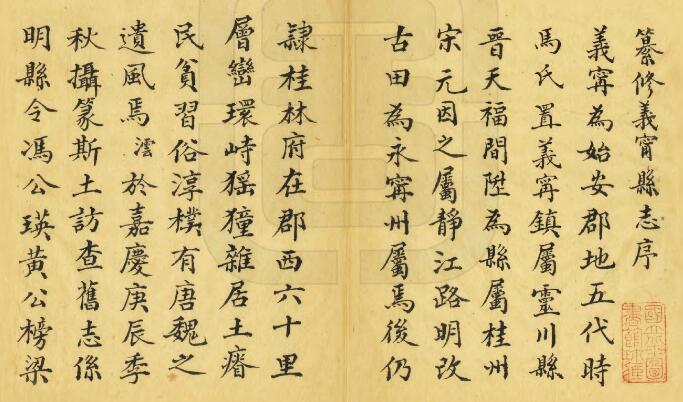 纂修義寧縣志序
義寧為始安郡地五代時
馬氏置義寧鎮屬靈川縣
晉天福間陞為縣屬桂州
宋元因之屬靜江路明改
古田為永寧州屬焉後仍
隸桂林府在郡西六十里
層巒環峙猺獞雜居土瘠
民貧習俗淳樸有唐魏之
遺風焉澐於嘉慶庚辰季
秋攝篆斯土訪查舊志係
明縣令馮公瑛黃公榜梁